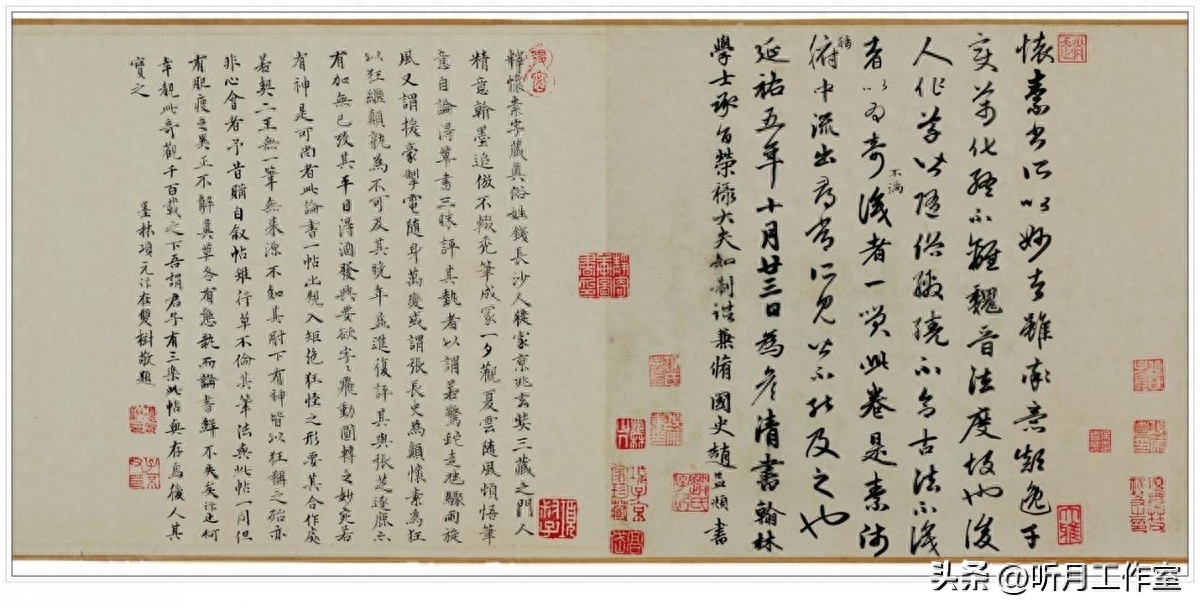 懷素書所以妙者雖率意顛逸千
變萬化終不離魏晉法度故也後
人作草皆隨俗繳繞不合古法不識
者以為奇不滿識者一笑此卷是素師
肺腑中流出尋常所見皆不能及之也
延祐五年十月廿三日為彥清書翰林
學士承旨榮祿大夫知制誥兼脩國史趙孟頫書
釋懷素字藏真俗姓錢長沙人徙家京兆玄奘三藏之門人
精意翰墨追倣不輟禿筆成冢一夕觀夏雲隨風頓悟筆
意自論得草書三昧評其執者以謂若驚蛇走虺驟雨旋
風又謂援豪掣電隨身萬變或謂張長史為顛懷素為狂
以狂繼顛孰為不可及其晚年益進復評其與張芝逐鹿亦
有加無已發其平日得酒發興要欲字字飛動圓轉之妙宛若
有神是可尚者此論書一帖出規入矩絶狂怪之形要其合作處
若契二王無一筆無來源不知其肘下有神皆以狂稱之殆亦
非心會者予昔購自叙帖雖行草不倫其筆法與此帖一同但
有肥瘦之異正不解真草各有態執而論書鮮不失矣汴何
幸親此奇觀千百載之下吾謂君子有三樂此帖與存焉後人其
寶之
墨林項元汴在雙樹敬題
头条 @听月工作室